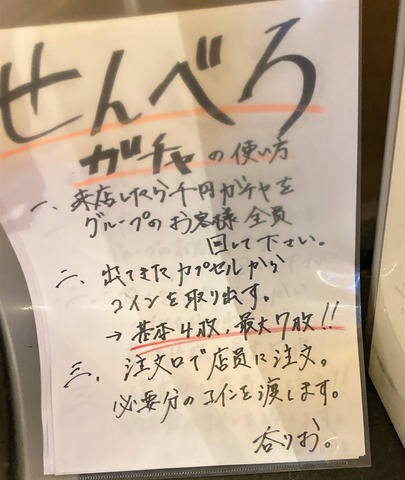 せんべろ
ガチャの使い方
一、来店したら千円ガチャを
グループのお客様全員
回して下さい。
二、出てきたカプセルから
コインを取り出す。
→基本4枚、最大7枚!!
三、注文口で店員に注文。
必要分のコインを渡します。
呑りお。